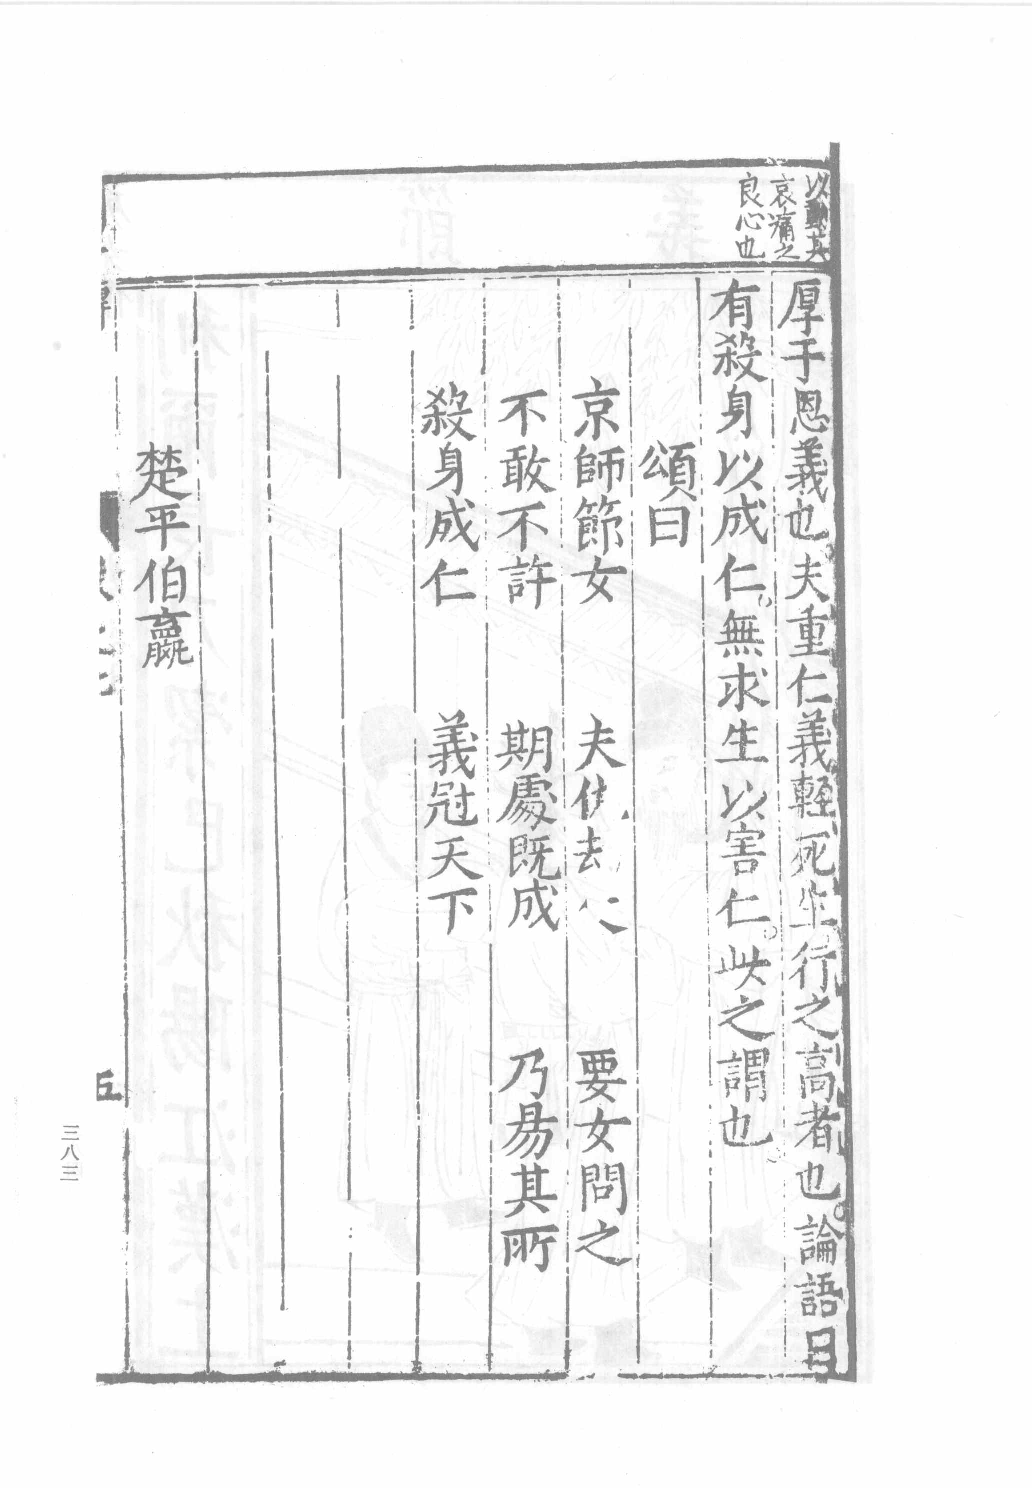 以動其
哀痛之
良心也
厚于恩義也夫重仁義輕死生行之高者也論語曰
有殺身以成仁無求生以害仁此之謂也
頌曰
京師節女 夫 要女問之
不敢不許 期處既成 乃易其所
殺身成仁 義冠天下
楚平伯嬴
五
三八三